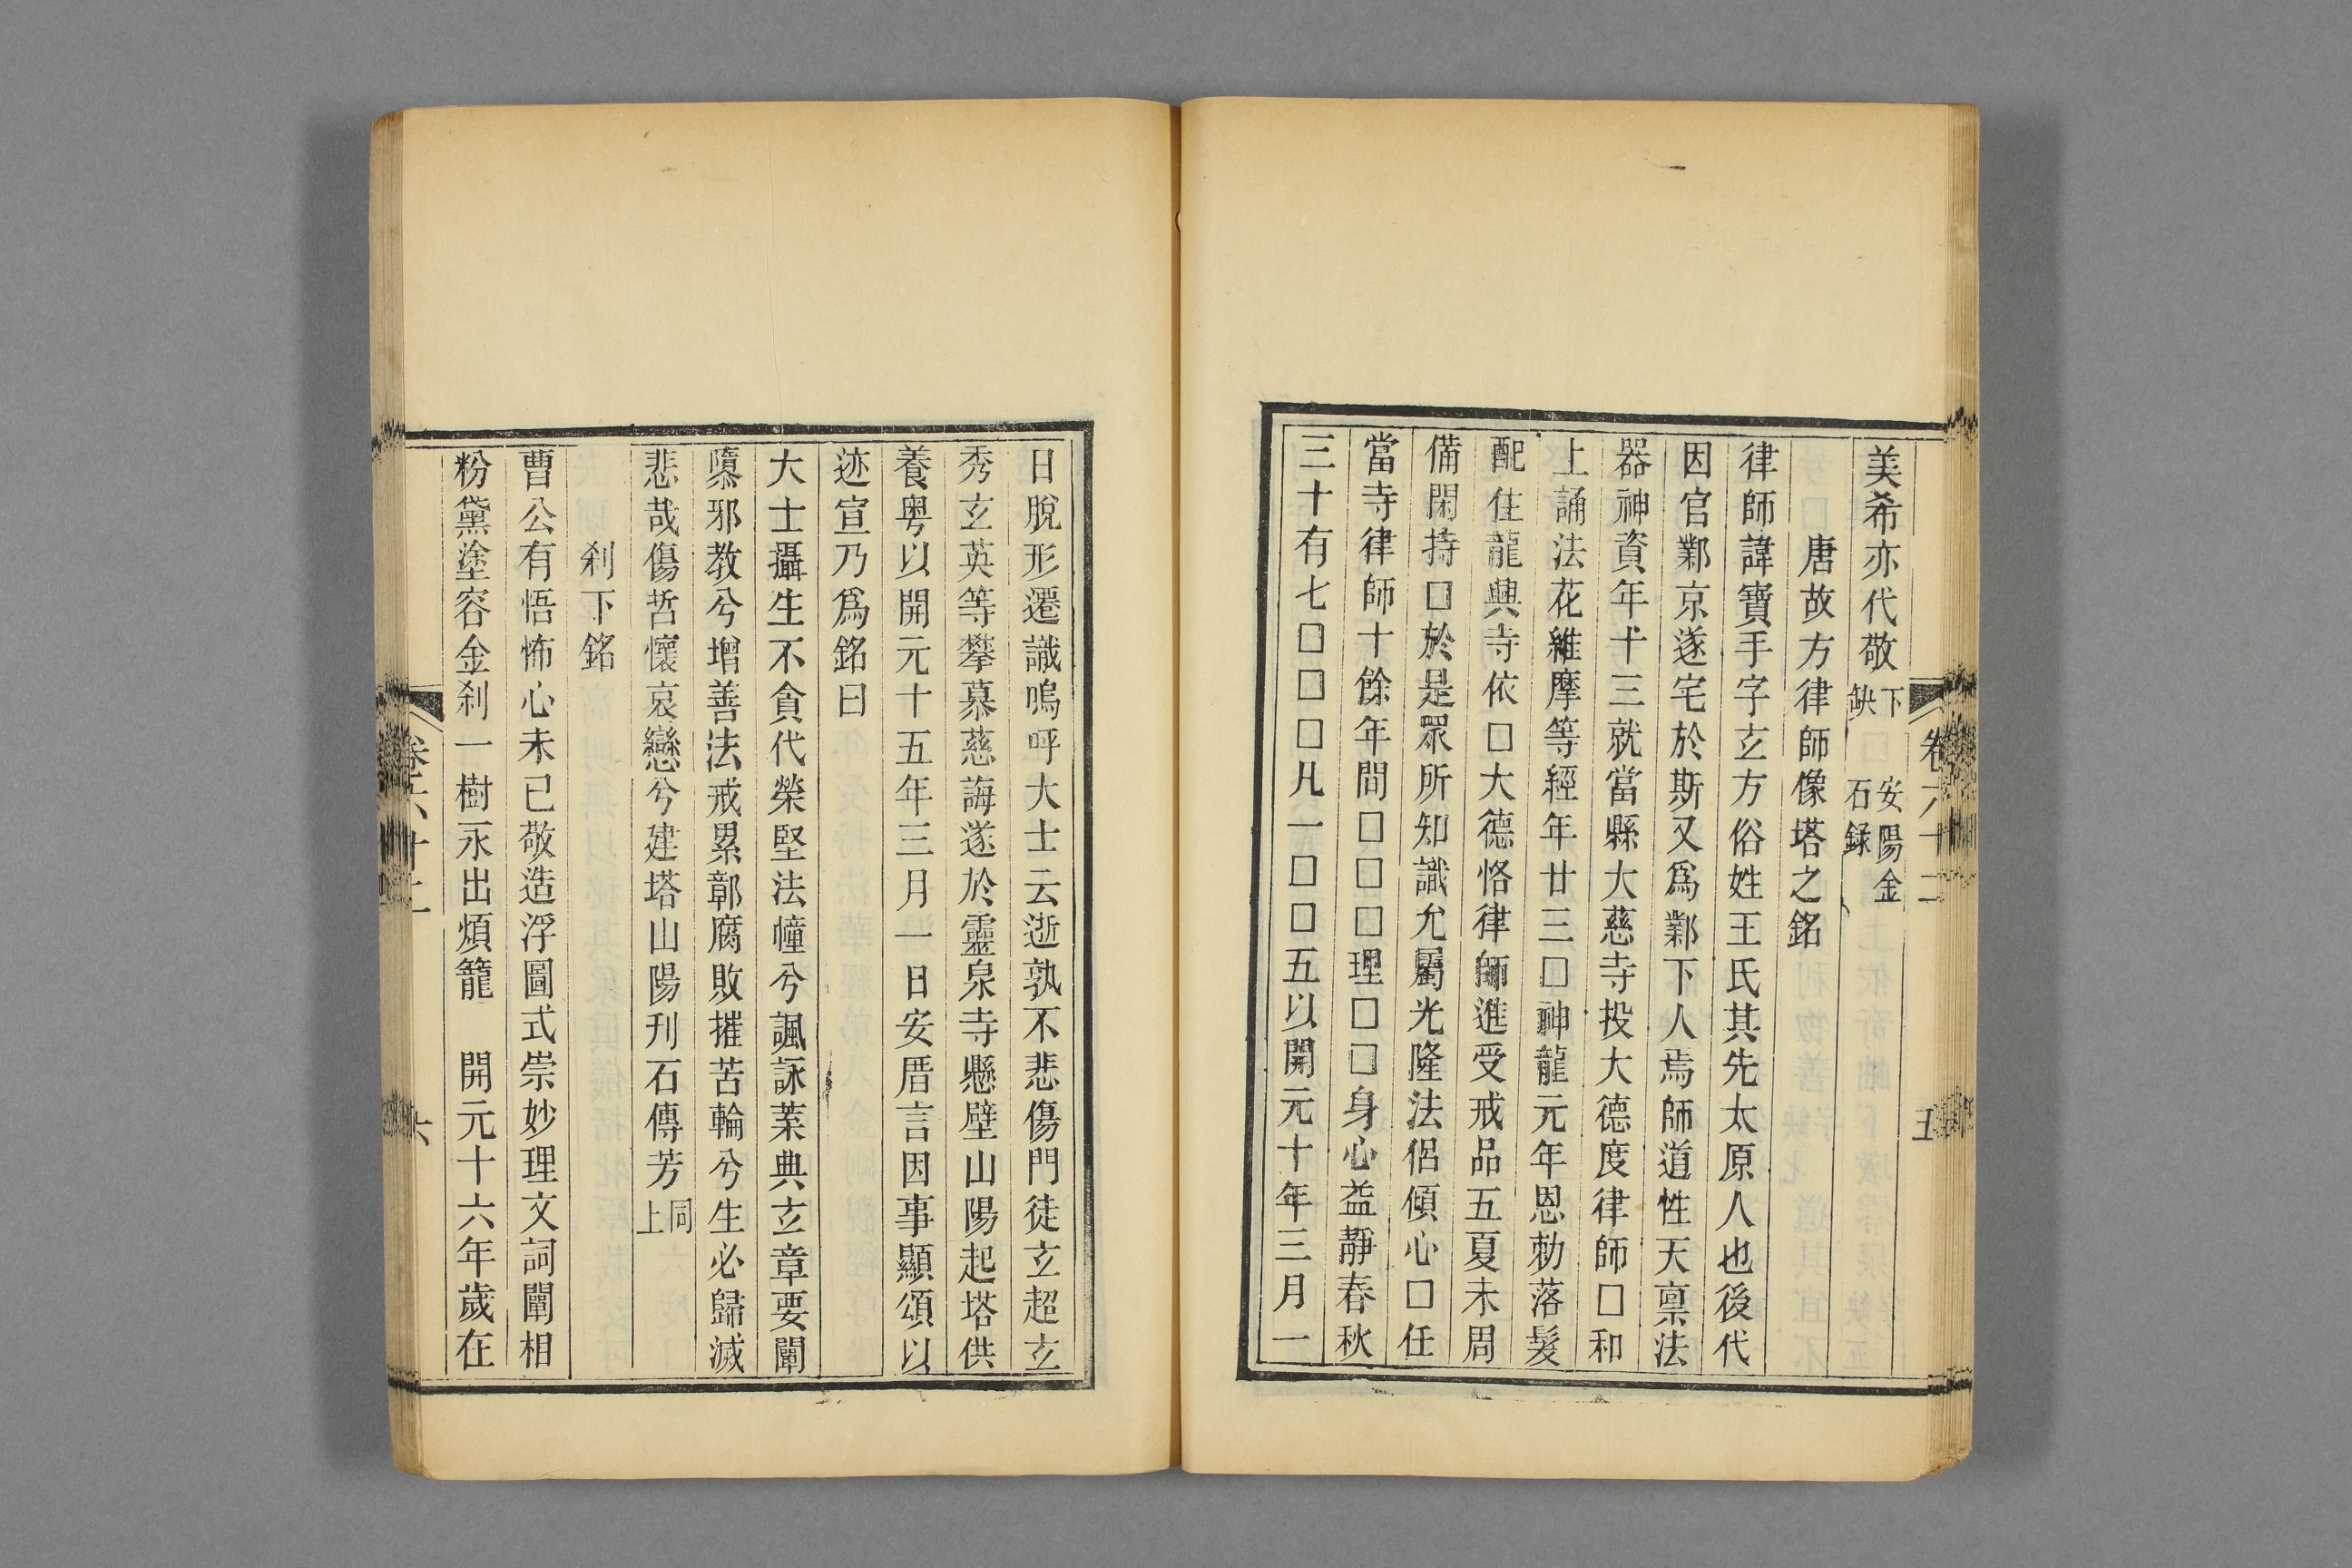 美希亦代敬下缺 安陽金石錄
唐故方律師像塔之銘
律師諱寶手字玄方俗姓王氏其先太原人也後代
因官鄴京遂宅於斯又爲鄴下人焉師道性天稟法
器神資年十三就當縣大慈寺投大德度律師□和
上誦法花維摩等經年廿三□神龍元年恩勑落髮
配住龍興寺依□大德恪律師進受戒品五夏未周
備閑持□於是眾所知識允屬光隆法侶傾心□任
當寺律師十餘年間□□□理□□身心益靜春秋
三十有七□□□凡一□□五以開元十年三月一
日脫形遷識嗚呼大士云逝孰不悲傷門徒玄超玄
秀玄英等攀慕慈誨遂於靈泉寺懸壁山陽起塔供
養粵以開元十五年三月一日安厝言因事顯頌以
迹宣乃爲銘曰
大士攝生不貪代榮堅法幢兮諷詠葉典玄章要闡
隳邪教兮增善法戒累鄣腐敗摧苦輪兮生必歸滅
悲哉傷哲懷哀戀兮建塔山陽刊石傳芳同上
刹下銘
曹公有悟怖心未已敬造浮圖式崇妙理文詞闡相
粉黛塗容金刹一樹永出煩籠 開元十六年歲在
卷六十二 六